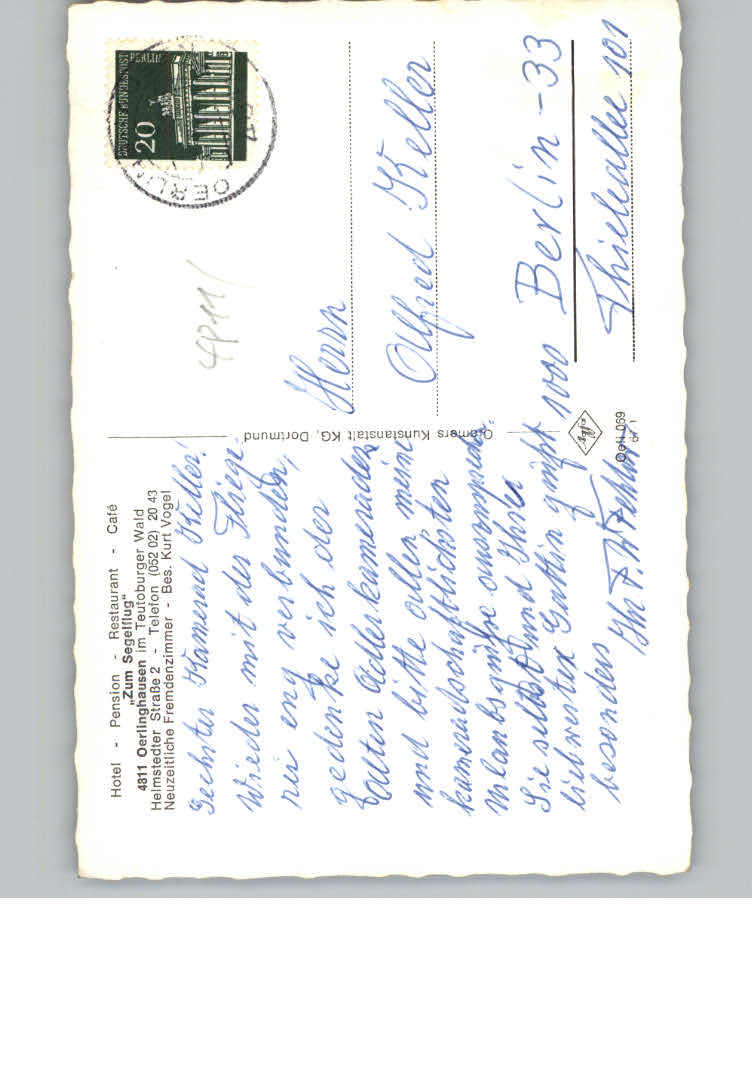 Hotel - Pension - Restaurant - Café
„Zum Segelflug"
4811 Oerlinghausen im Teutoburger Wald
Helmstedter Straße 2 - Telefon (052 02) 20 43
Neuzeitliche Fremdenzimmer - Bes. Kurt Vogel
Geehrter Kamerad Keller!
Wieder mit der Fliege-
rei eng verbunden,
gedenke ich der
alten Adlerkameraden
und bitte allen meine
kameradschaftlichsten
Urlaubsgrüße
Sie selbst und Ihre
liebwerten Gattin grüßt
besonders
Ihr F. W.
Cramers Kunstanstalt KG, Dortmund
Agfa
Oerl 069
DEUTSCHE BUNDESPOST
BERLIN
20
OERLIN
4811
Herrn
Alfred Keller
1000 Berlin-33
Thielallee 101